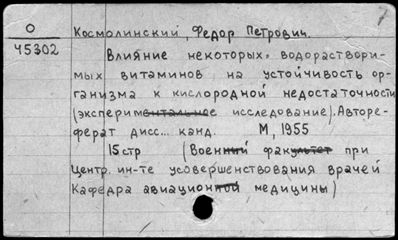 О
45302
Космолинский, Федор Петрович.
Влияние некоторых водораствори-
мых витаминов на устойчивость ор-
ганизма к кислородной недостаточности
(экспериментальное исследование). Авторе-
ферат дисс... канд. М, 1955
15 стр (Военный факультет при
Центр. ин-те усовершенствования врачей
Кафедра авиационной медицины)